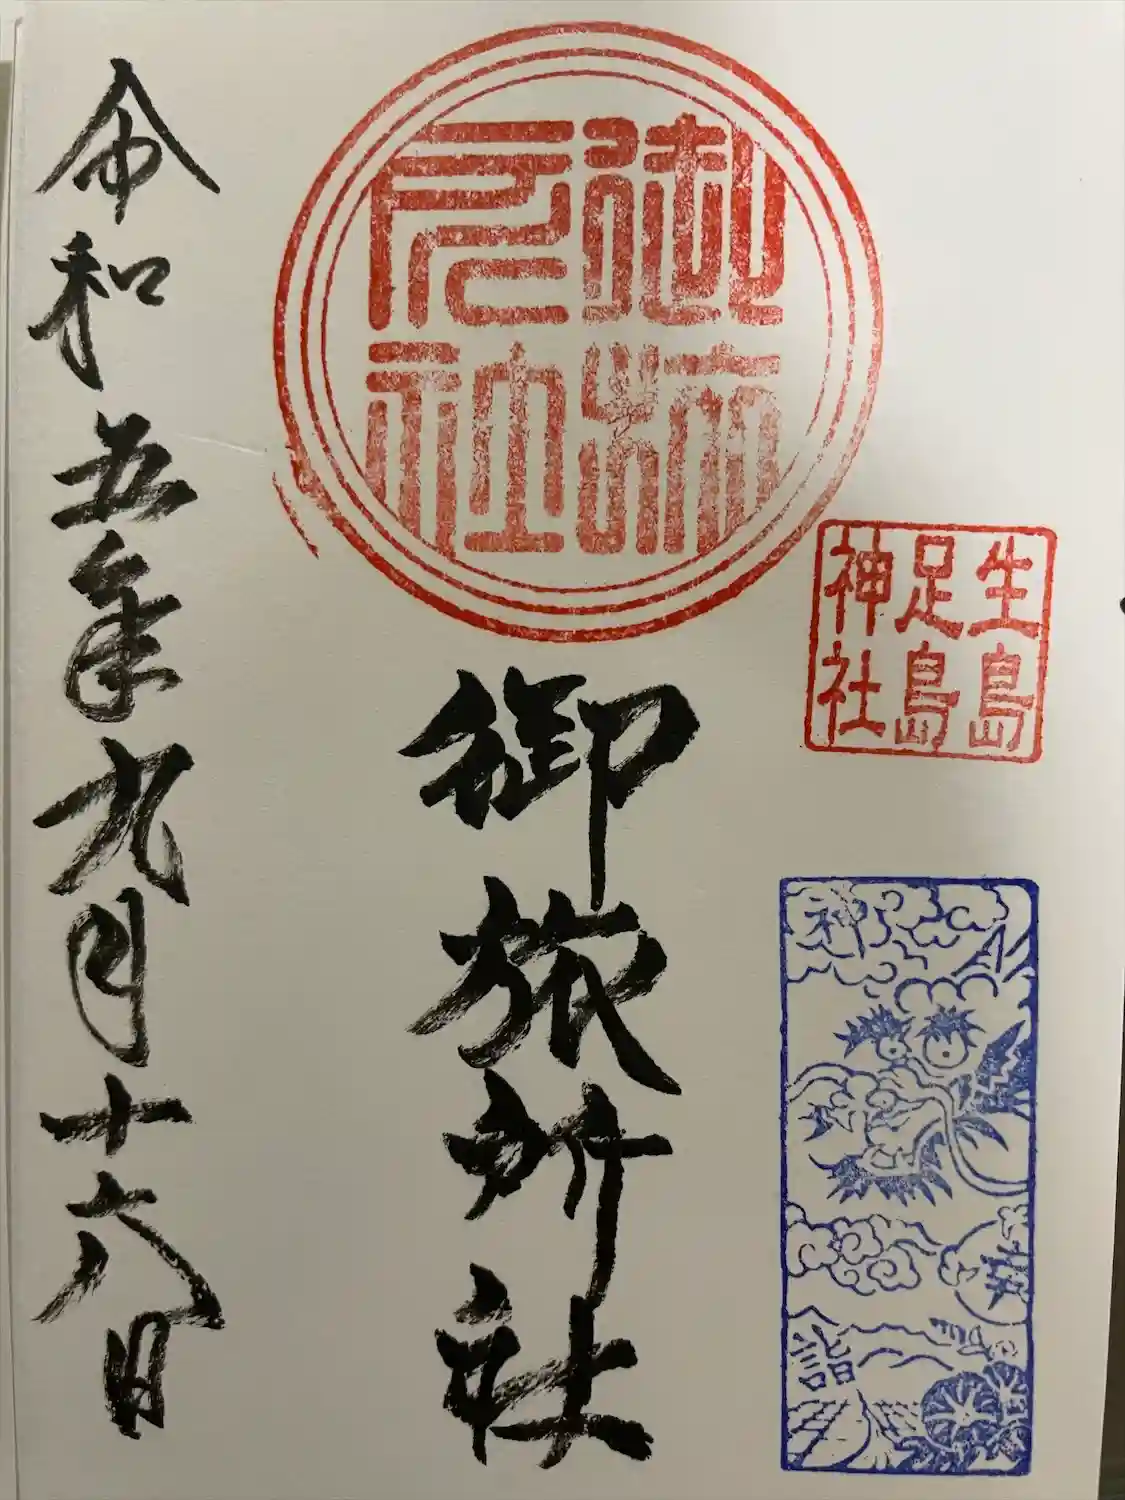 御旅
所社
生島
足島
神社
神
詣
御旅所社
令和五年九月十六日